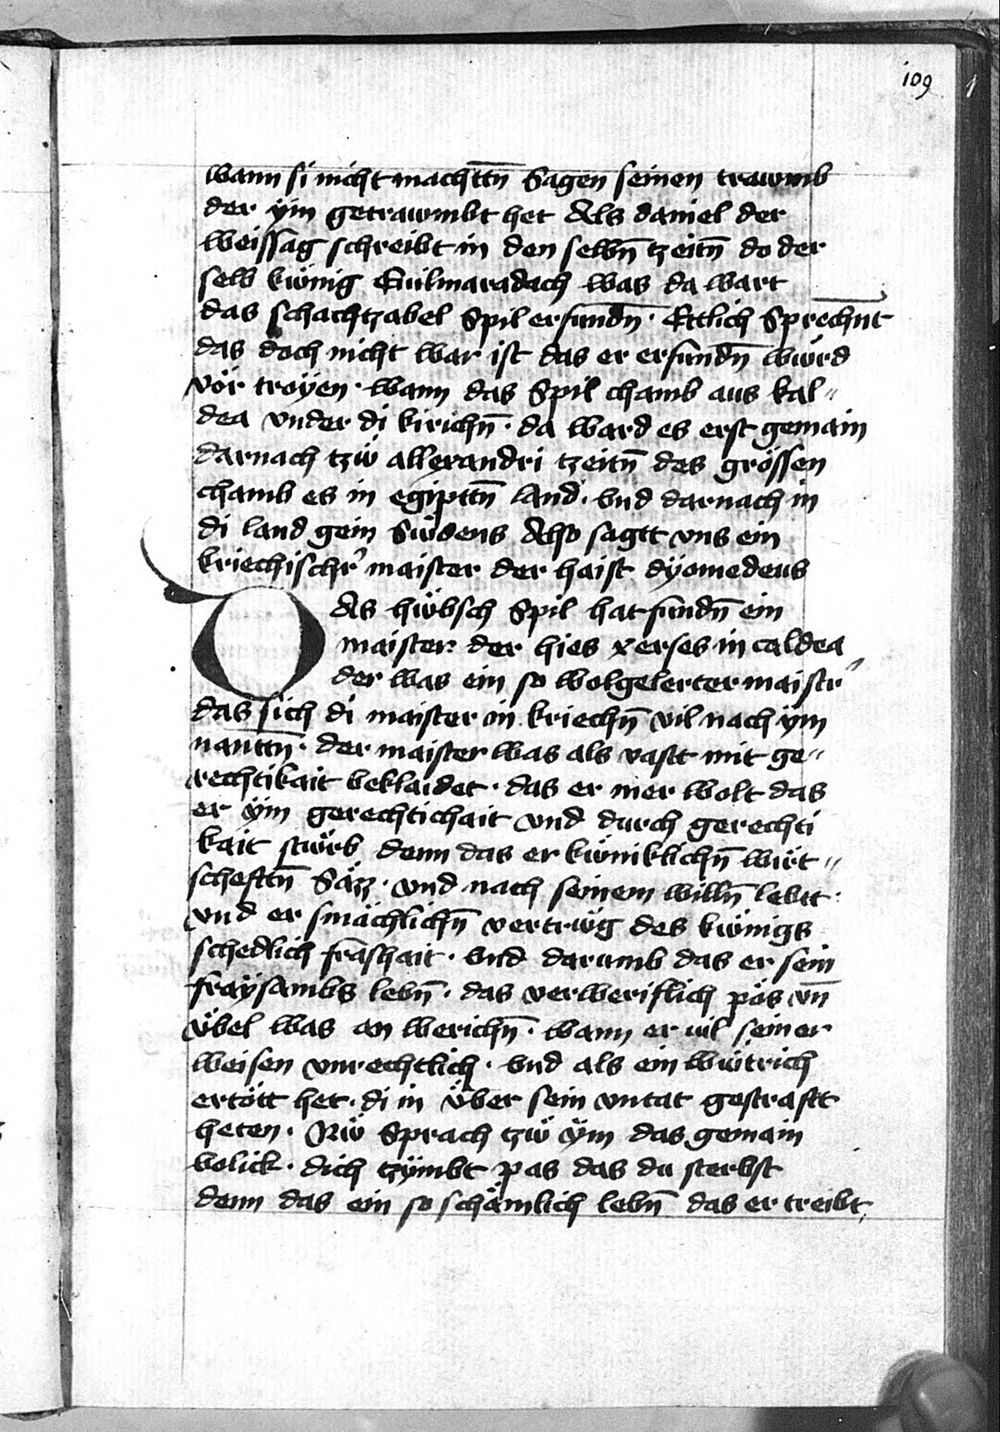 109
wann si nicht machttn̄ Sagen seinen trawmb
der ÿm getrawmbt het Als daniel der
weissag schreibt in den selbn̄ tzeitn̄ do der
selb kwnig Euilmaradach was da wart
das schachtzabel Spil erfundn̄ · Ettlich Sprechnt
das doch nicht war ist das er erfundn̄ wurd
vör troyen · wann das Spil chamb aus kal〃
dea vnder di kirichn̄ · da ward es erst gemain
darnach tzw̎ allexandri tzeitn̄ des grössen
chamb es in egipttn̄ land · vnd darnach in
di land gein Sẅdens Also sagtt vns ein
kriechischr̓ maister der haist dyomedeus
DAs hẅbsch Spil hat fundn̄ ein
maister der hies xerses in caldea
der was ein so wolgelerter maistr̓
das sich di maister in kriechn̄ vil nach ÿm
nanttn̄ · der maister was als vastt mit ge〃
rechtikait beklaidet · das er mer wolt das
er ÿm gerechtichait vnd durch gerechti
kait stẅrb denn das er kẅniklichn̄ wirt〃
schefttn̄ Säzz · vnd nach seinem willn̄ lebtt ·
vnd er smächlichn̄ vertrẅg des kẅnigs
schedlich frashait · vnd darumb das er sein
fraÿsambs lebn̄ · das verweriflich pös vn̄
v̈bel was an werichn̄ · wann er vil seiner
weisen vnrechtlich · vnd als ein wẅtrich
ertött het · di in v̈ber sein vntat gestrafft
heten · Nẅ Sprach tzẅ ÿm das gemain
volick · dich tzÿmbt pas das du sterbst
denn das ein so schämlich lebn̄ das er treibt